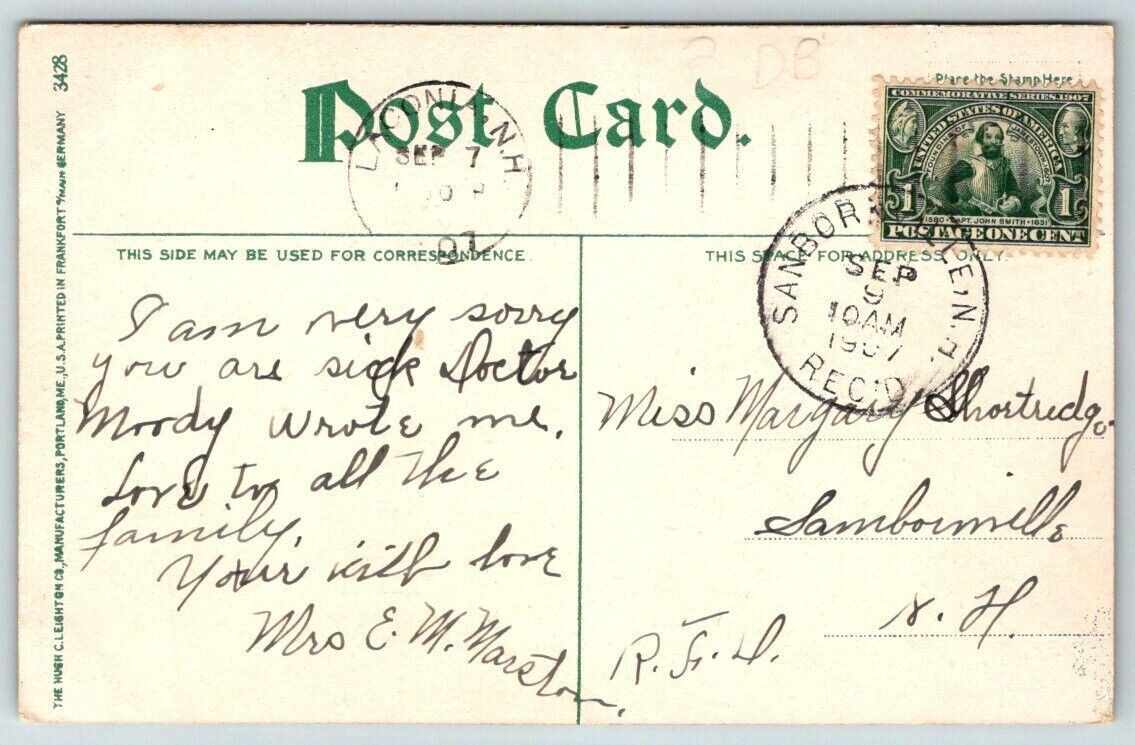 3428
THE HUGH C. LEIGHTON CO., MANUFACTURERS, PORTLAND, ME., U.S.A. PRINTED IN FRANKFORT a/MAIN GERMANY
Post Card.
DB
Place the Stamp Here
LACONIA, N.H.
SEP 7
07
COMMEMORATIVE SERIES, 1907
UNITED STATES OF AMERICA
FOUNDING OF JAMESTOWN 1607
1 1
1580 · CAPT. JOHN SMITH · 1631
POSTAGE ONE CENT
SANBORNVILLE, N.H.
SEP
9
10 AM
1907
REC'D
THIS SIDE MAY BE USED FOR CORRESPONDENCE.
THIS SPACE FOR ADDRESS ONLY.
I am very sorry
you are sick Doctor
Moody wrote me.
Love to all the
family.
Your with love
Mrs E. M. Marston.
Miss Margary Shortredge
Sanbornville
N. H.
R. F. D.